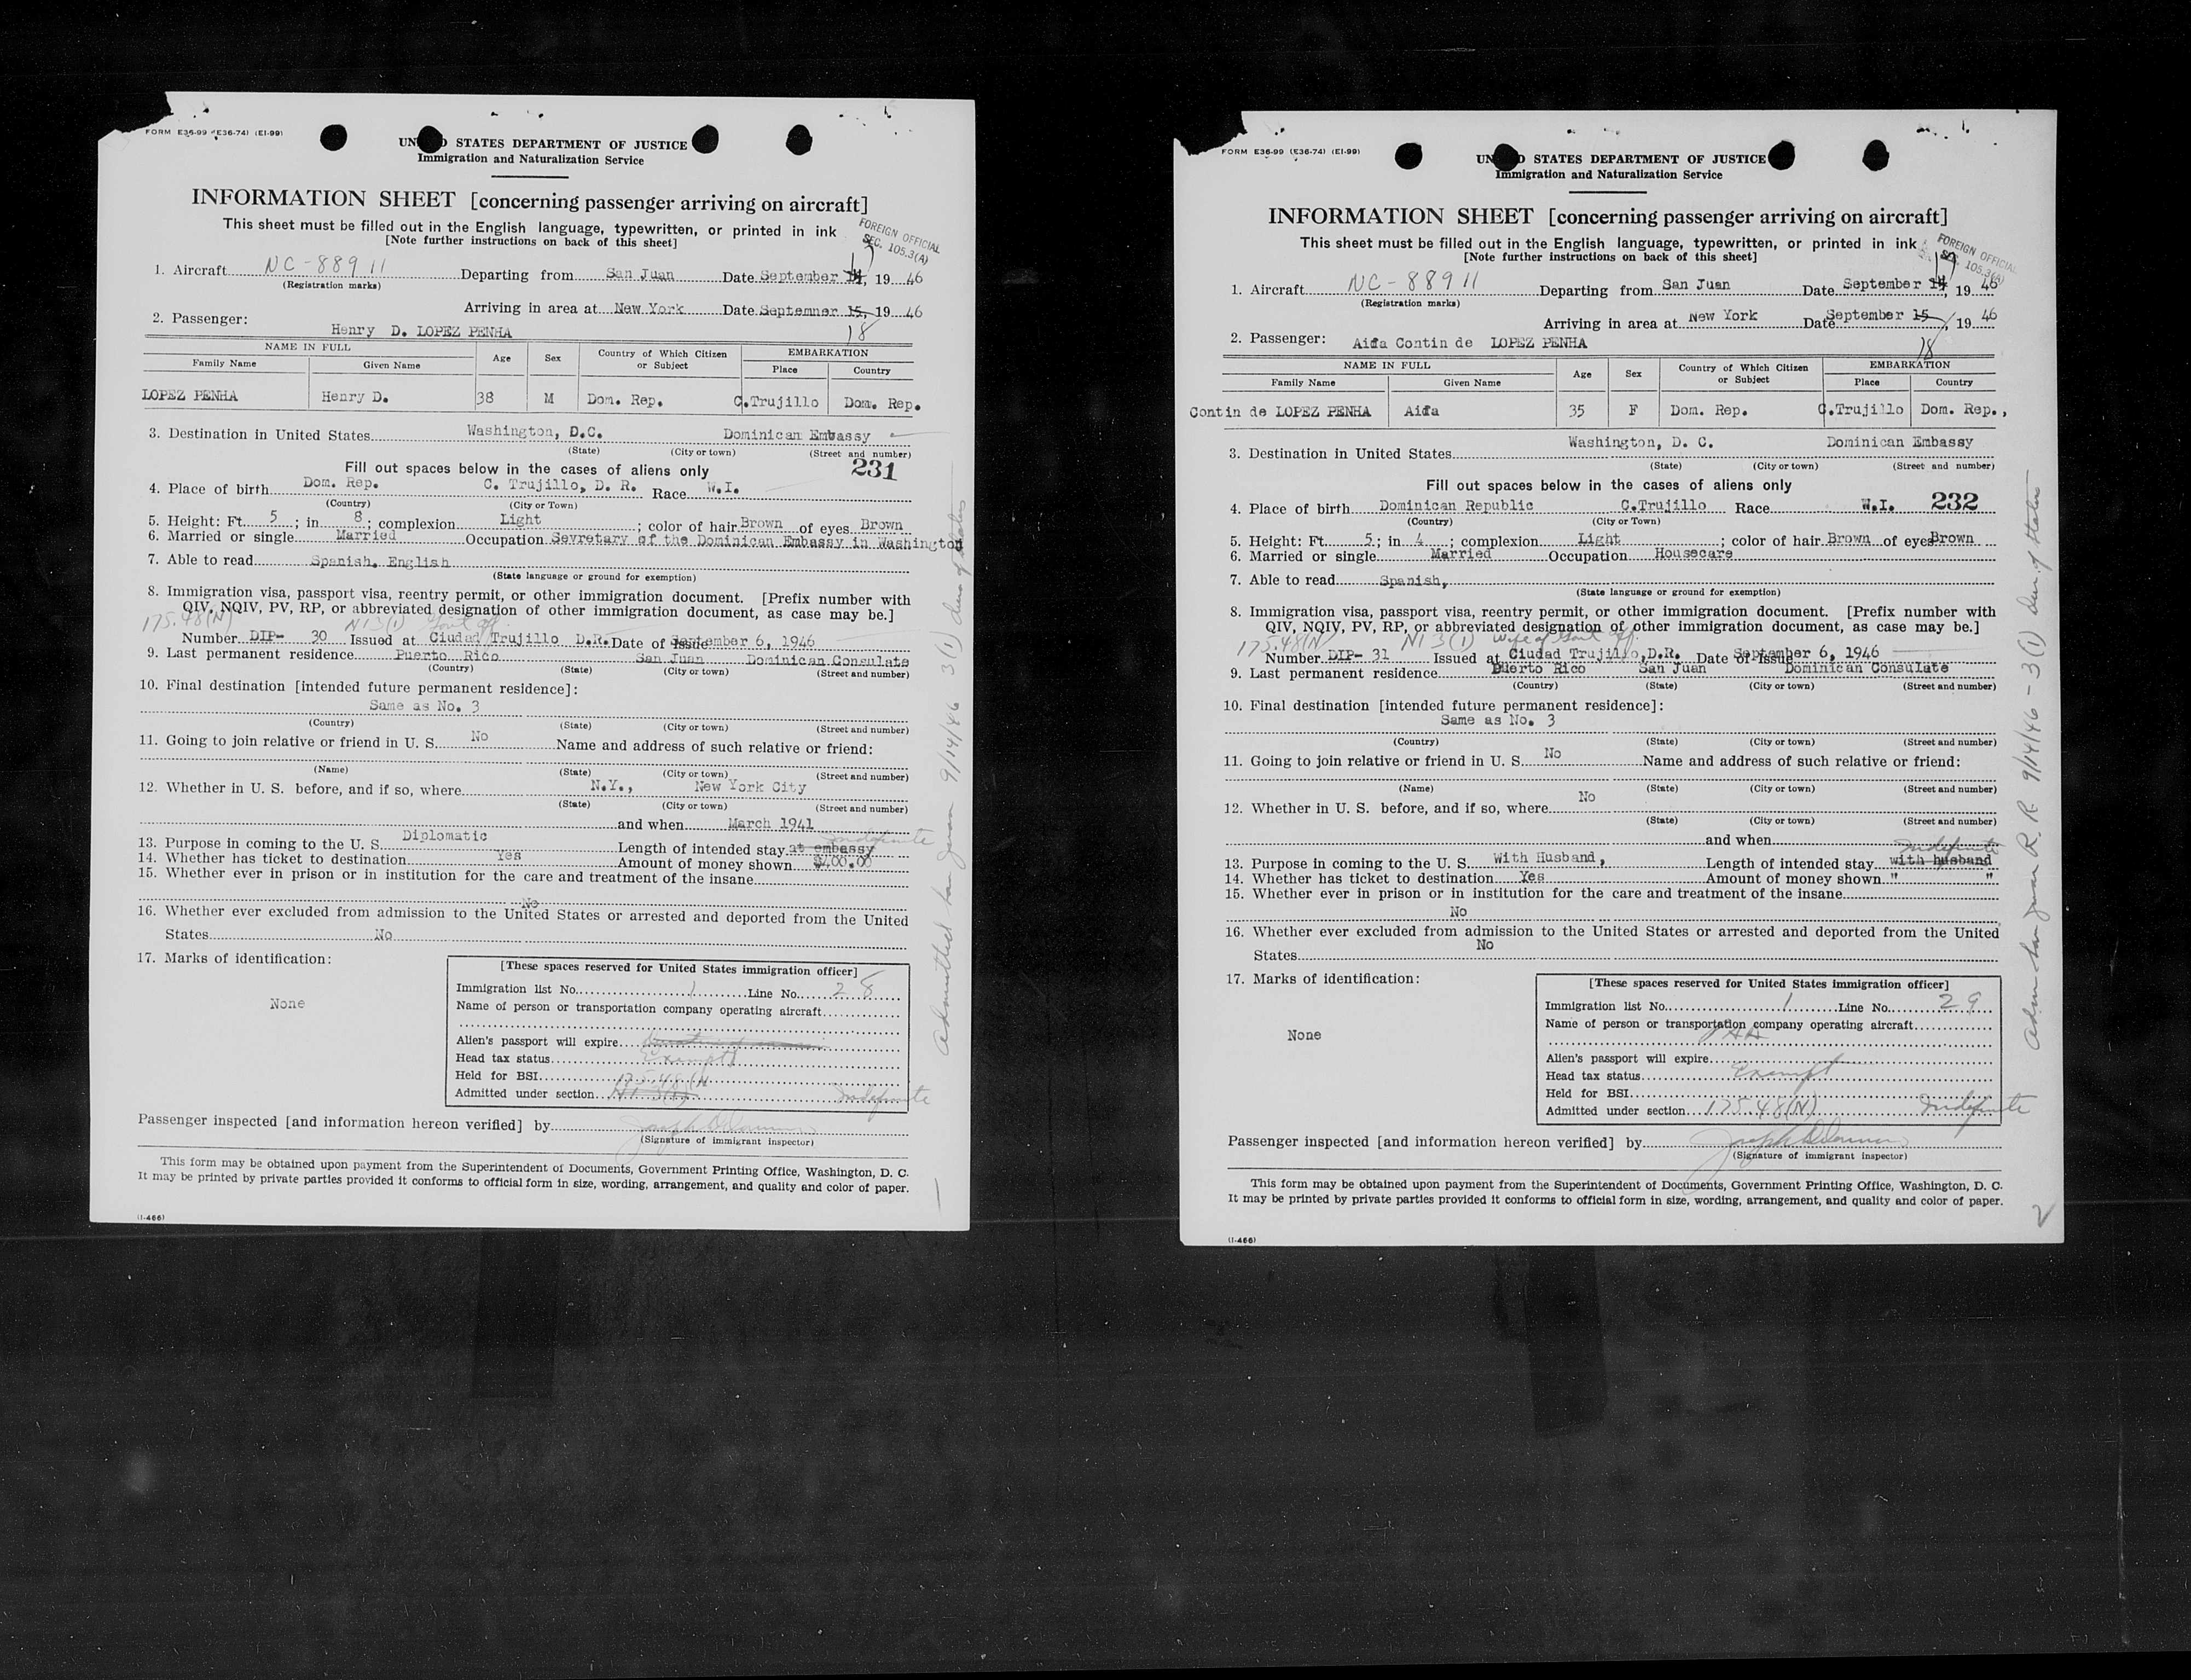 FORM E36-99 (E36-74) (EI-99)
UN D STATES DEPARTMENT OF JUSTICE
Immigration and Naturalization Service
INFORMATION SHEET [concerning passenger arriving on aircraft]
This sheet must be filled out in the English language, typewritten, or printed in ink
[Note further instructions on back of this sheet]
FOREIGN OFFICIAL
SEC. 105.3(A)
17
1. Aircraft NC-88911 Departing from San Juan Date September 14, 1946
(Registration marks)
Arriving in area at New York Date Septemner 15, 1946
18
2. Passenger: Henry D. LOPEZ PENHA
NAME IN FULL Age Sex Country of Which Citizen or Subject EMBARKATION
Family Name Given Name Place Country
LOPEZ PENHA Henry D. 38 M Dom. Rep. C.Trujillo Dom. Rep.
3. Destination in United States Washington, D.C. Dominican Embassy
(State) (City or town) (Street and number)
Fill out spaces below in the cases of aliens only 231
4. Place of birth Dom. Rep. C. Trujillo, D. R. Race W.I.
(Country) (City or Town)
5. Height: Ft. 5; in 8; complexion Light; color of hair Brown of eyes Brown
6. Married or single Married Occupation Sevretary of the Dominican Embassy in Washington
7. Able to read Spanish, English
(State language or ground for exemption)
8. Immigration visa, passport visa, reentry permit, or other immigration document. [Prefix number with
QIV, NQIV, PV, RP, or abbreviated designation of other immigration document, as case may be.]
175.48(N) NI 3(1) Govt off.
Number DIP- 30 Issued at Ciudad Trujillo D.R. Date of Issue September 6, 1946
9. Last permanent residence Puerto Rico San Juan Dominican Consulate
(Country) (State) (City or town) (Street and number)
10. Final destination [intended future permanent residence]:
Same as No. 3
(Country) (State) (City or town) (Street and number)
11. Going to join relative or friend in U. S. No Name and address of such relative or friend:
(Name) (State) (City or town) (Street and number)
12. Whether in U. S. before, and if so, where N.Y., New York City
(State) (City or town) (Street and number)
and when March 1941
Indefinite
13. Purpose in coming to the U. S. Diplomatic Length of intended stay at embassy
14. Whether has ticket to destination Yes Amount of money shown $400.00
15. Whether ever in prison or in institution for the care and treatment of the insane
No
16. Whether ever excluded from admission to the United States or arrested and deported from the United
States No
17. Marks of identification:
None
[These spaces reserved for United States immigration officer]
Immigration list No. 1 Line No. 28
Name of person or transportation company operating aircraft
Alien's passport will expire
Head tax status Exempt
Held for BSI
175.48(N
Admitted under section NI 3(1) Indefinite
Passenger inspected [and information hereon verified] by
(Signature of immigrant inspector)
This form may be obtained upon payment from the Superintendent of Documents, Government Printing Office, Washington, D. C.
It may be printed by private parties provided it conforms to official form in size, wording, arrangement, and quality and color of paper.
(I-466)
Admitted San Juan 9/14/46 3(1) dur of status
FORM E36-99 (E36-74) (EI-99)
UN D STATES DEPARTMENT OF JUSTICE
Immigration and Naturalization Service
INFORMATION SHEET [concerning passenger arriving on aircraft]
This sheet must be filled out in the English language, typewritten, or printed in ink
[Note further instructions on back of this sheet]
FOREIGN OFFICIAL
SEC. 105.3(A)
17
1. Aircraft NC-88911 Departing from San Juan Date September 14, 1946
(Registration marks)
Arriving in area at New York Date September 15, 1946
18
2. Passenger: Aida Contin de LOPEZ PENHA
NAME IN FULL Age Sex Country of Which Citizen or Subject EMBARKATION
Family Name Given Name Place Country
Contin de LOPEZ PENHA Aida 35 F Dom. Rep. C.Trujillo Dom. Rep.,
3. Destination in United States Washington, D. C. Dominican Embassy
(State) (City or town) (Street and number)
Fill out spaces below in the cases of aliens only
4. Place of birth Dominican Republic C.Trujillo Race W.I. 232
(Country) (City or Town)
5. Height: Ft. 5; in 4; complexion Light; color of hair Brown of eyes Brown
6. Married or single Married Occupation Housecare
7. Able to read Spanish,
(State language or ground for exemption)
8. Immigration visa, passport visa, reentry permit, or other immigration document. [Prefix number with
QIV, NQIV, PV, RP, or abbreviated designation of other immigration document, as case may be.]
175.48(N) NI 3(1) Wife of Govt off.
Number DIP- 31 Issued at Ciudad Trujillo,D.R. Date of Issue September 6, 1946
9. Last permanent residence Puerto Rico San Juan Dominican Consulate
(Country) (State) (City or town) (Street and number)
10. Final destination [intended future permanent residence]:
Same as No. 3
(Country) (State) (City or town) (Street and number)
11. Going to join relative or friend in U. S. No Name and address of such relative or friend:
(Name) (State) (City or town) (Street and number)
12. Whether in U. S. before, and if so, where No
(State) (City or town) (Street and number)
and when
Indefinite
13. Purpose in coming to the U. S. With Husband, Length of intended stay with husband
14. Whether has ticket to destination Yes Amount of money shown " "
15. Whether ever in prison or in institution for the care and treatment of the insane
No
16. Whether ever excluded from admission to the United States or arrested and deported from the United
States No
17. Marks of identification:
None
[These spaces reserved for United States immigration officer]
Immigration list No. 1 Line No. 29
Name of person or transportation company operating aircraft
PAA
Alien's passport will expire
Head tax status Exempt
Held for BSI
Admitted under section 175.48(N) Indefinite
Passenger inspected [and information hereon verified] by
(Signature of immigrant inspector)
This form may be obtained upon payment from the Superintendent of Documents, Government Printing Office, Washington, D. C.
It may be printed by private parties provided it conforms to official form in size, wording, arrangement, and quality and color of paper.
(I-466)
Adm San Juan P. R. 9/14/46 - 3(1) dur. of status
2